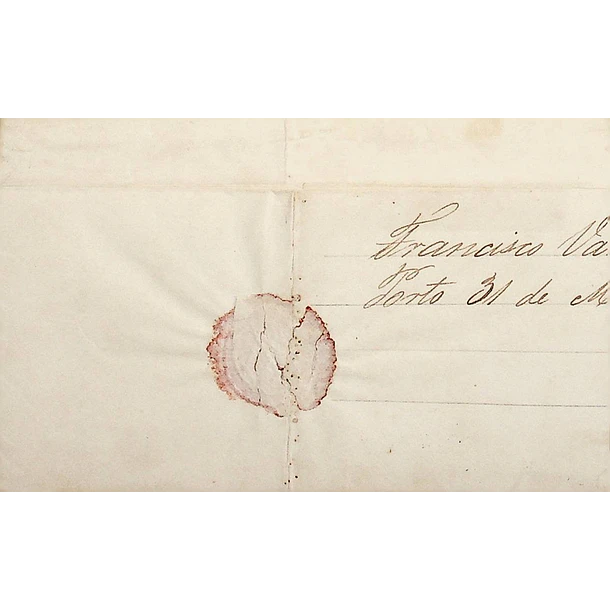 Francisco Va
Porto 31 de M